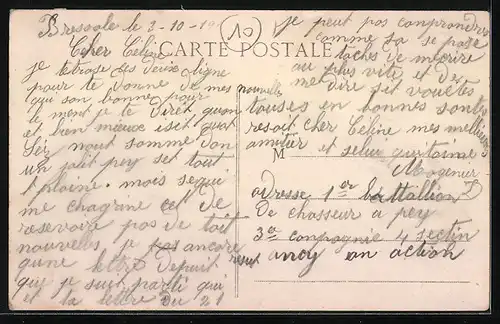 Bressole le 2-10-19
10
CARTE POSTALE
Cher Céline
je tétrase ces deux ligne
pour te donne de mes nouvelle
qui son bonne pour
le ment je te diret quon
et bien mieux isit qua
nout somme don
un jolit pey set tout
plaine. mois sequi
me chagrine cet de
reservoire pas de toit
nouvelles je pas ancore
qune lettre depuit
que je suit parti qui
et ta lettre du 21
je peut pas comprondre
comme sa se pase
taches de mecrire
au plus vite et de
me dire sit vouetes
touses en bonnes sontes
resoit cher Céline mes meilleurs
amitier et salue
M
adresse 1er battallion
de chasseur a pey
3e compagnie 4 sectin
anoy an action